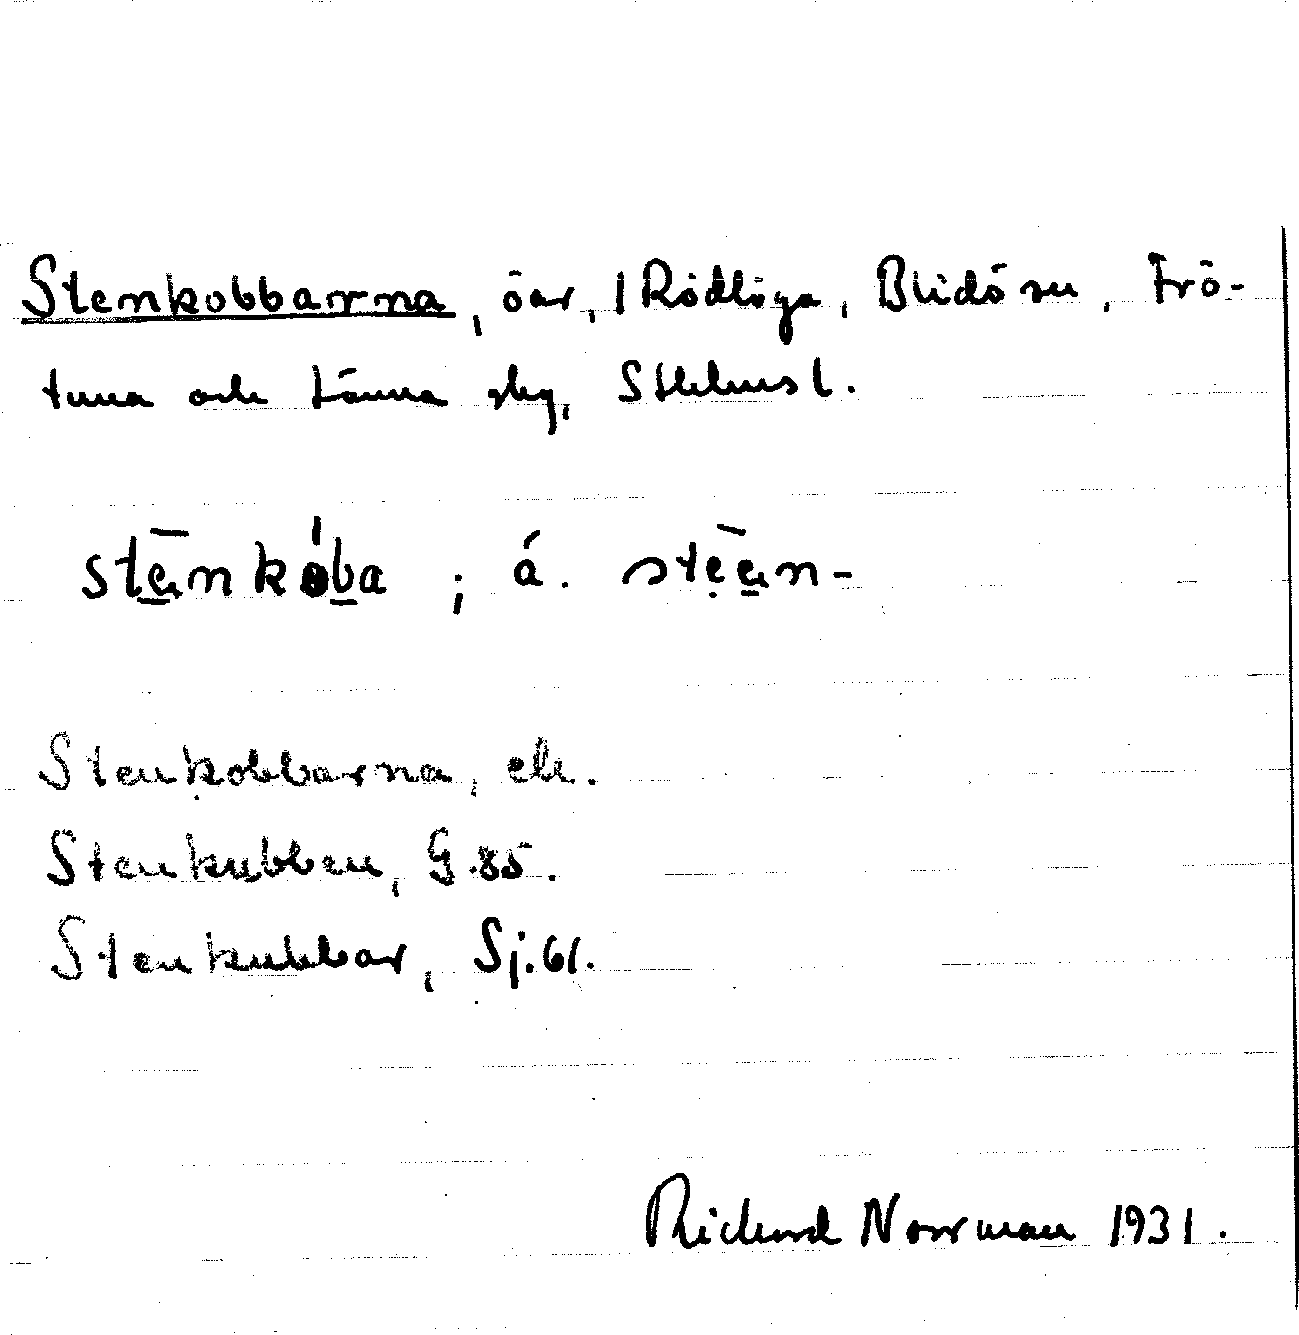 Stenkobbarna, öar, 1 Rödlöga, Blidö sn, Frö-
tuna och Länna skg, Sthlms l.
stēnkóba ; á. stēen-
Stenkobbarna, ek.
Stenkubben, G.85.
Stenkubbar, Sj.61.
Richard Norrman 1931.